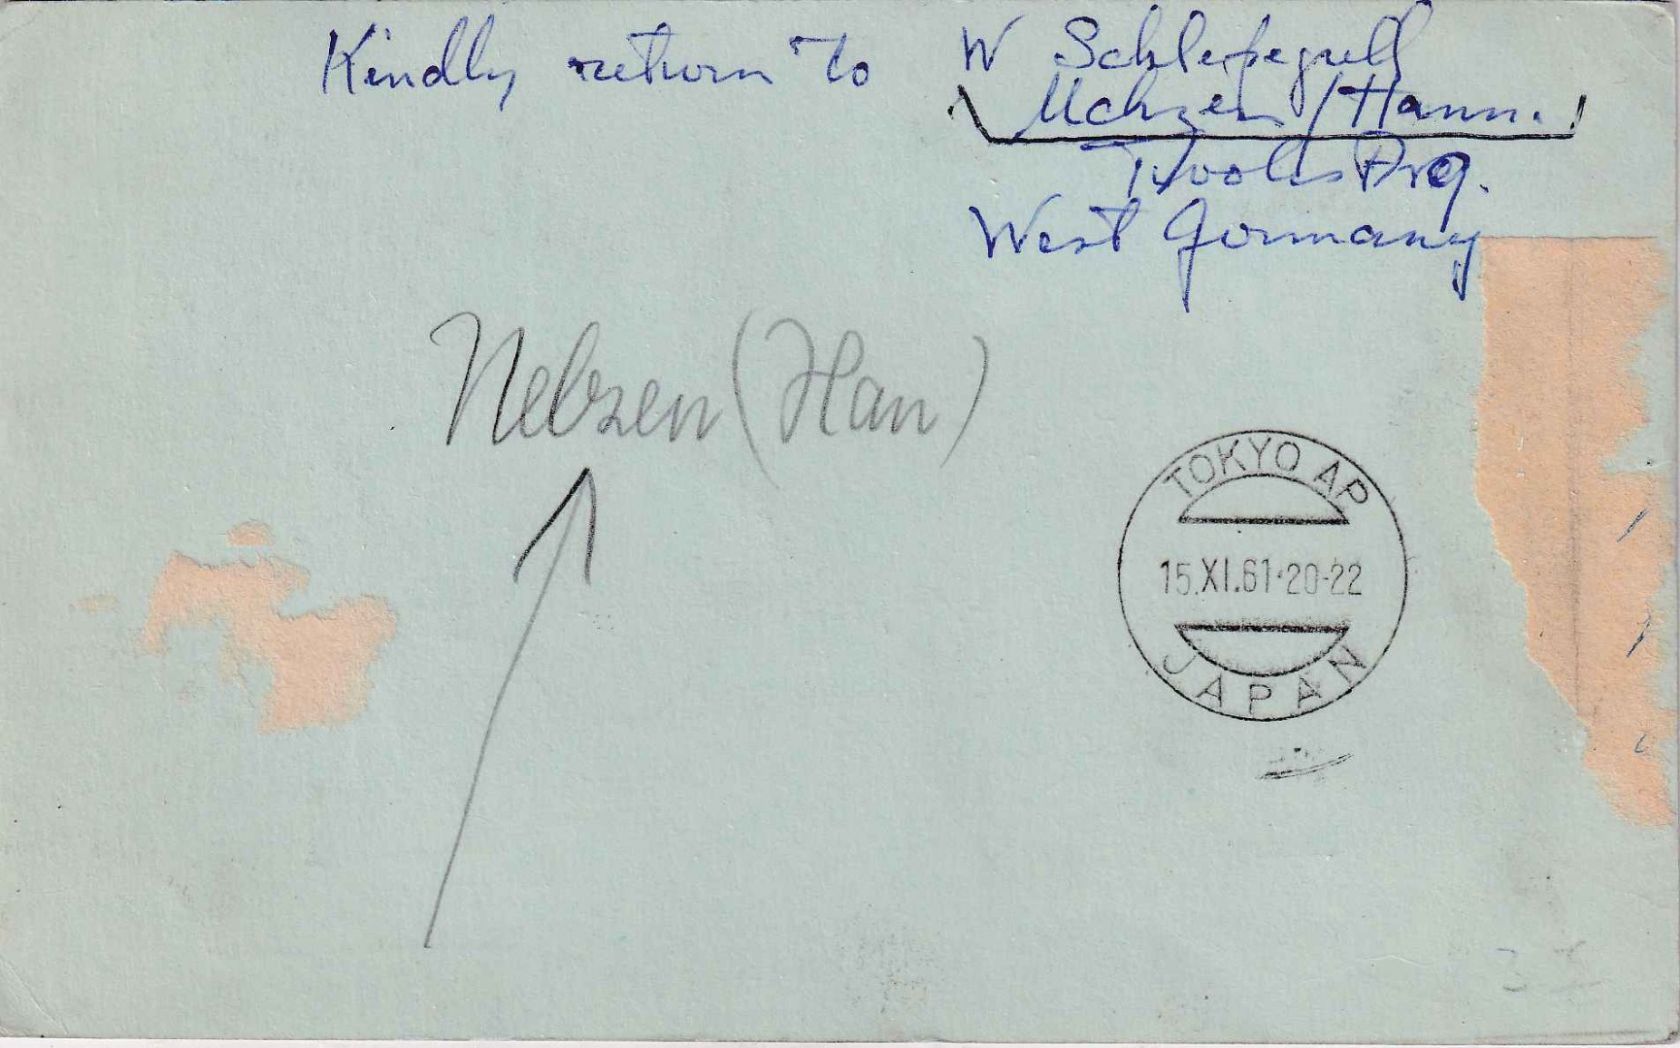 Kindly return to W Schlepegrell
Uelzen / Hann.
West Germany
Nelzen (Han)
TOKYO AP
15.XI.61.20-22
JAPAN